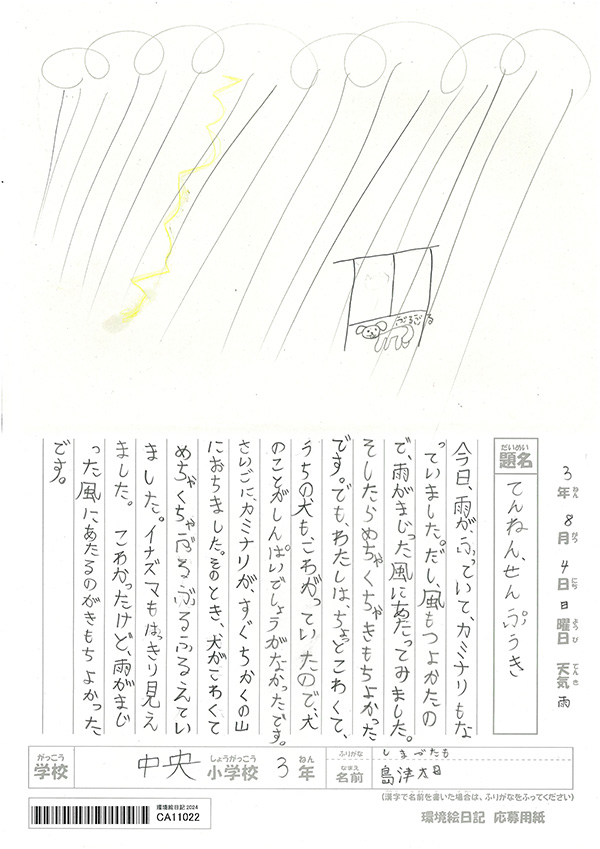 ぶるぶる
3年8月4日日曜日 天気雨
ねん がつ にち ようび てんき
だいめい
題名 てんねん、せんぷうき
今日、雨がふっていて、カミナリもな
っていました。だし、風もつよかったの
で、雨がまじった風にあたってみました。
そしたらめちゃくちゃきもちよかった
です。でも、わたしは、ちょっとこわくて、
うちの犬も、こわがっていたので、犬
のことがしんぱいでしょうがなかったです。
さいごに、カミナリが、すぐちかくの山
におちました。そのとき、犬がこわくて
めちゃくちゃぶるぶるふるえてい
ました。イナズマもはっきり見え
ました。こわかったけど、雨がまじ
った風にあたるのがきもちよかった
です。
がっこう しょうがっこう ねん ふりがな
学校 中央 小学校 3年
しまづ
なまえ
名前 島津
(漢字で名前を書いた場合は、ふりがなをふってください)
環境絵日記2024
CA11022
環境絵日記 応募用紙